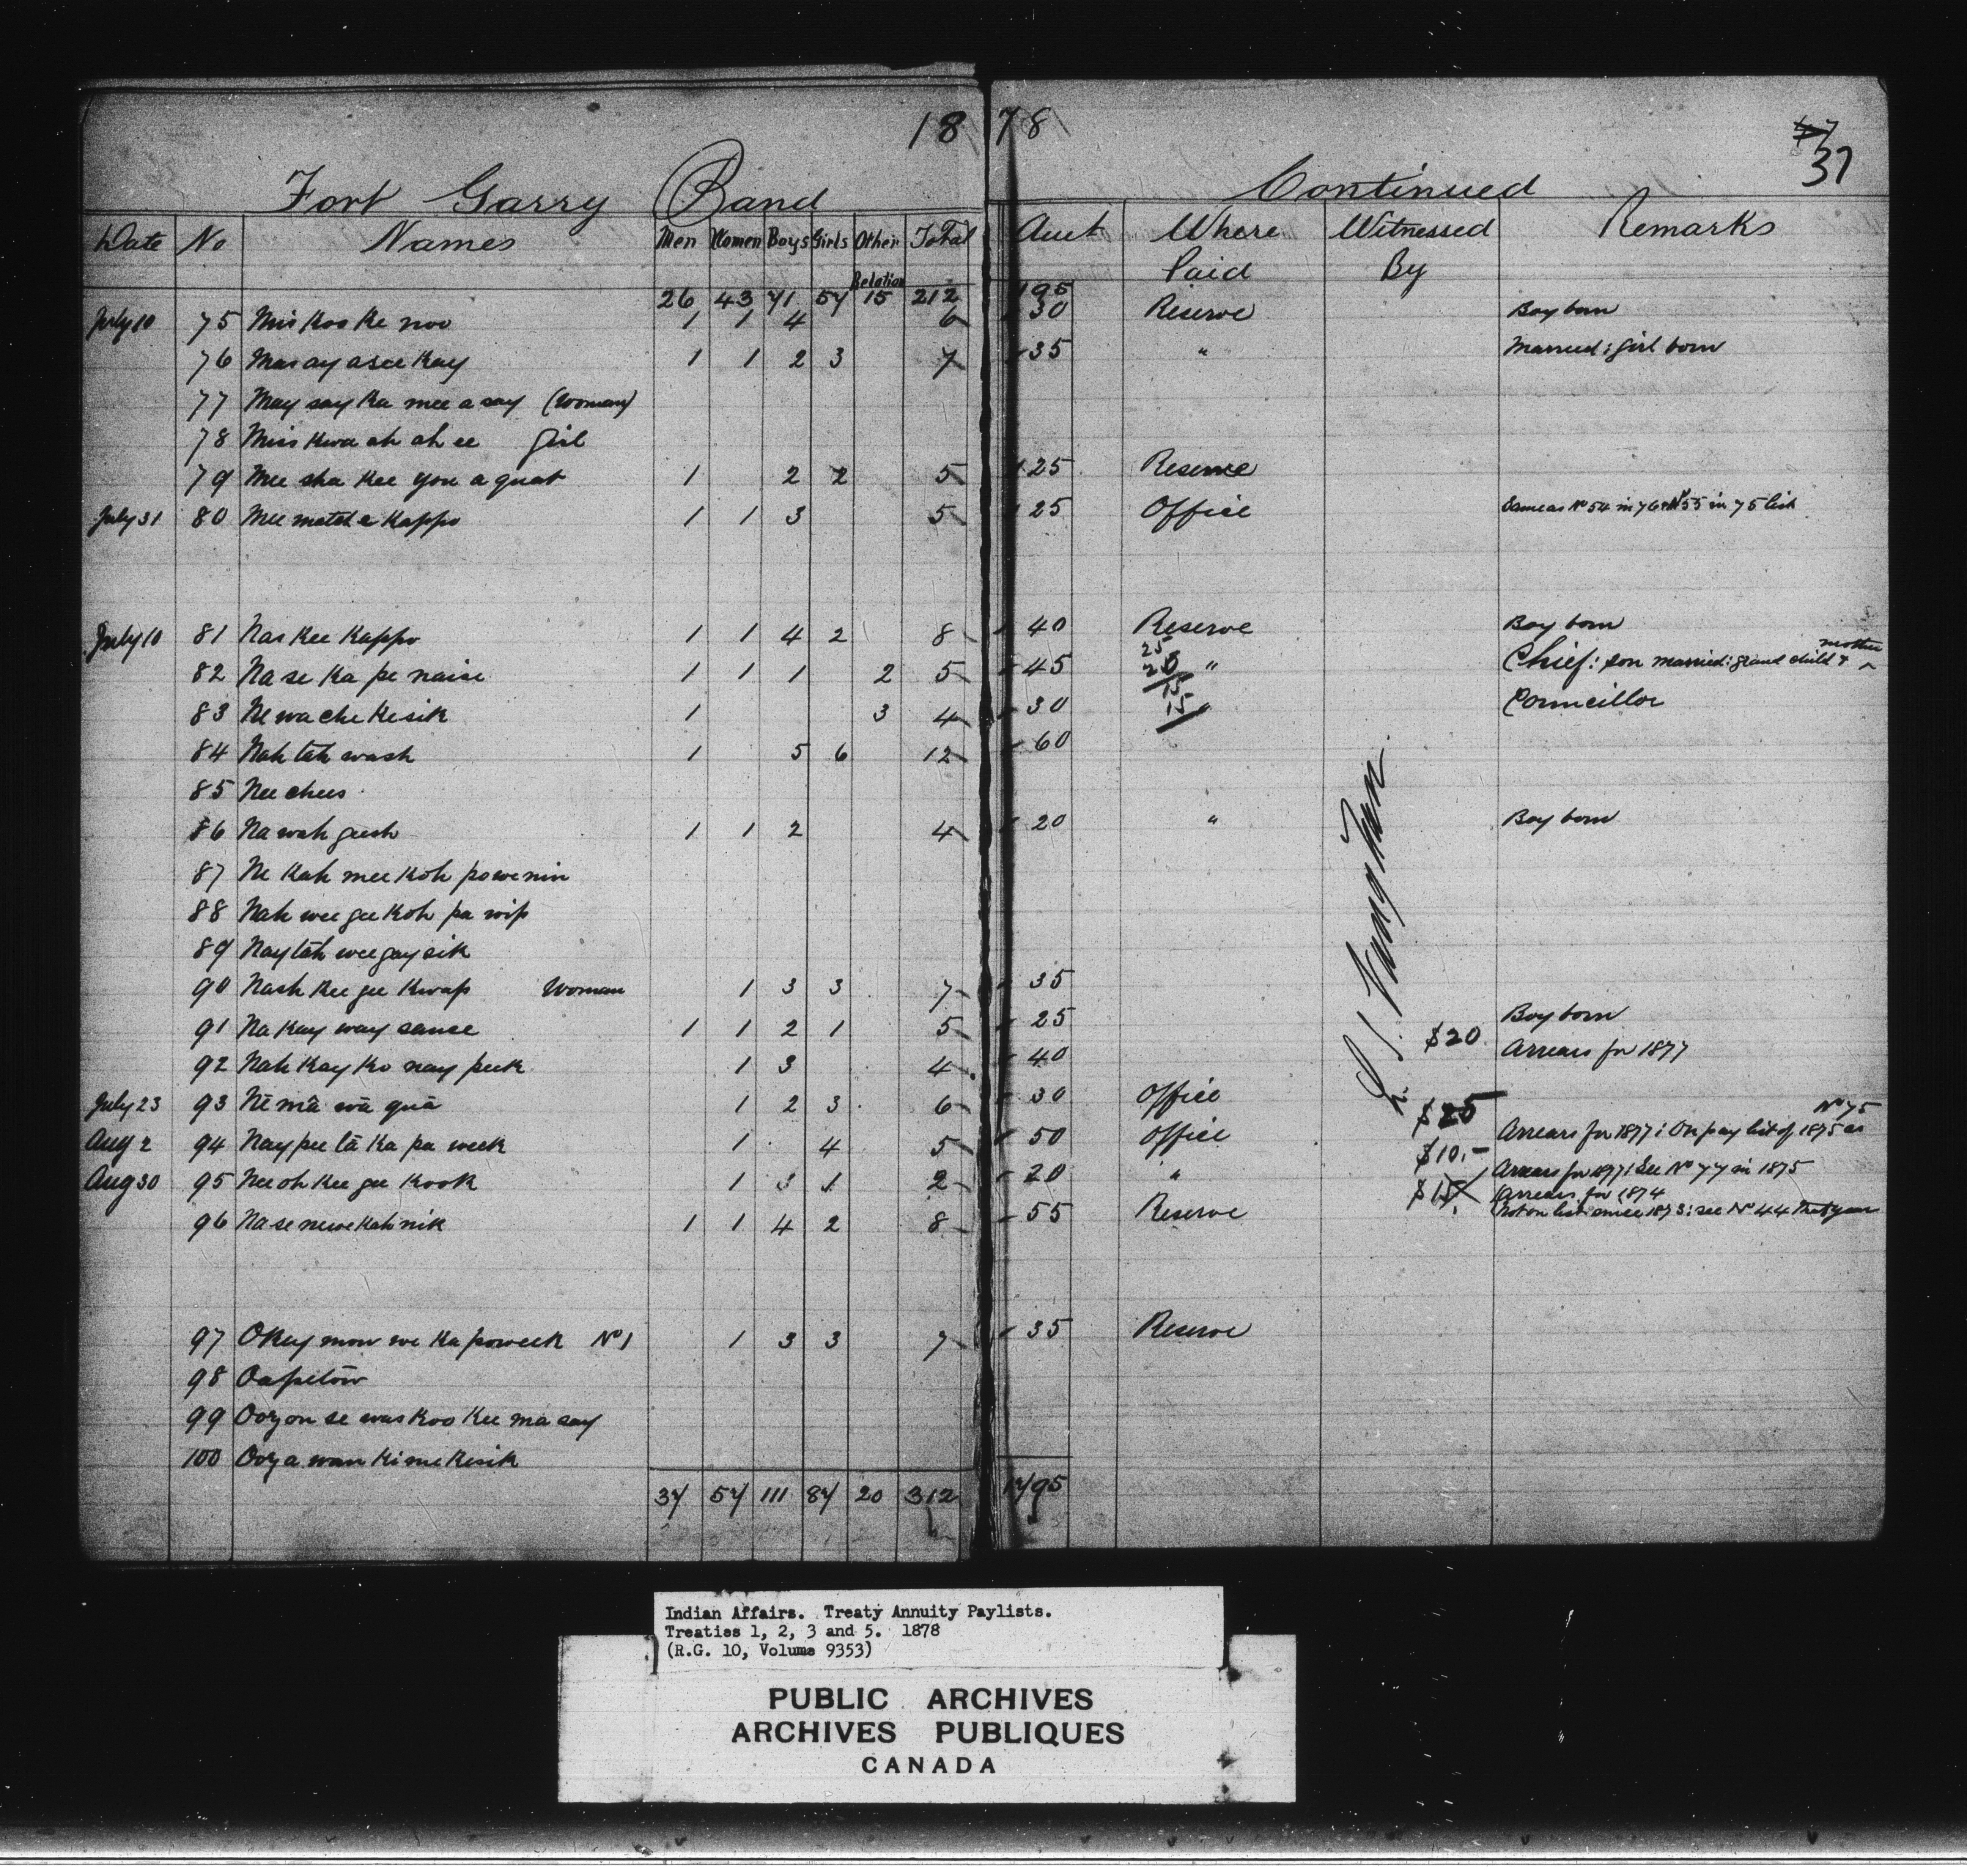 1878
37
Fort Garry Band Continued
Date No Names Men Women Boys Girls Other Relation Total Amt Where Paid Witnessed By Remarks
26 43 71 57 15 212 195
July 10 75 Mis Koo Ke noo 1 1 4 6 30 Reserve Boy born
76 Mas ay asee Kay 1 1 2 3 7 35 " Married; girl born
77 May say Ka mee a say (Woman)
78 Miss Kwa ah ah ee Girl
79 Mee sha Kee you a quat 1 2 2 5 25 Reserve
July 31 80 Mee matche Kappo 1 1 3 5 25 Office Same as No 54 in 76 & No 55 in 75 list
July 10 81 Nas Kee Kappo 1 1 4 2 8 40 Reserve Boy born
82 Na se Ka pe naise 1 1 1 2 5 45 25 20 " Chief: son married: grand child & mother
83 Ne wa che Kesik 1 3 4 30 15 15 " Councillor
84 Nah tah wash 1 5 6 12 60
85 Nee chees
86 Na wah gush 1 1 2 4 20 " Boy born
87 Ne Kah mee Koh powenin
88 Nah wee gee Koh pa wip
89 Naytah wee gay sik
90 Nash Kee gee Kwap Woman 1 3 3 7 35
91 Na Kay way sause 1 1 2 1 5 25 Boy born
92 Nah Kay Ko nay peek 1 3 4 40 $20 Arrears for 1877
July 23 93 Nē mā wā quā 1 2 3 6 30 Office
Aug 2 94 Nay pee tā Ka pa week 1 4 5 50 Office $25 Arrears for 1877; On pay list of 1875 as No 75
Aug 30 95 Nee oh Kee gee Kook 1 3 1 2 20 " $10.- Arrears for 1877; See No 77 in 1875
96 Na se newe Kah nik 1 1 4 2 8 55 Reserve $15 Arrears for 1874
Not on list since 1873: see No 44 that year
97 Okey mow we Ka poweek No 1 1 3 3 7 35 Reserve
98 Oapetōw
99 Ooz on se was Koo Kee ma say
100 Ooz a wan Ki me Kesik
37 57 111 87 20 312 1795
Indian Affairs. Treaty Annuity Paylists.
Treaties 1, 2, 3 and 5. 1878
(R.G. 10, Volume 9353)
PUBLIC ARCHIVES
ARCHIVES PUBLIQUES
CANADA